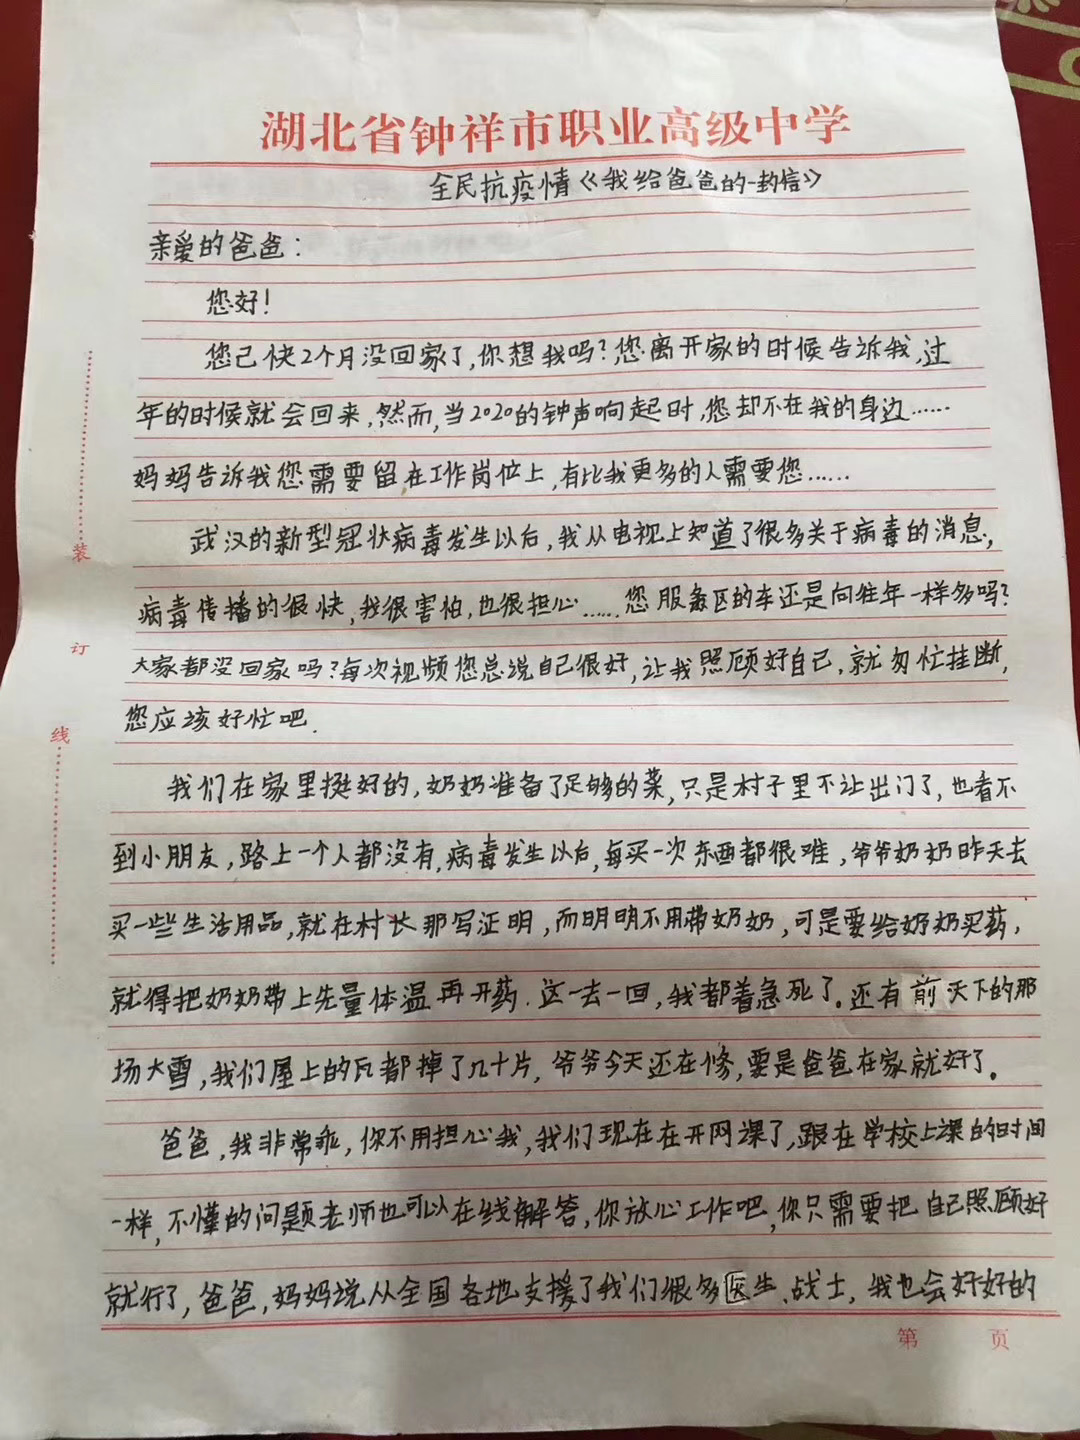 湖北省钟祥市职业高级中学
全民抗疫情《我给爸爸的一封信》
亲爱的爸爸：
您好！
您已快2个月没回家了,你想我吗?您离开家的时候告诉我,过
年的时候就会回来,然而,当2020的钟声响起时,您却不在我的身边……
妈妈告诉我您需要留在工作岗位上,有比我更多的人需要您……
武汉的新型冠状病毒发生以后,我从电视上知道了很多关于病毒的消息,
病毒传播的很快,我很害怕,也很担心……您服务区的车还是向往年一样多吗?
大家都没回家吗?每次视频您总说自己很好,让我照顾好自己,就匆忙挂断,
您应该好忙吧.
我们在家里挺好的,奶奶准备了足够的菜,只是村子里不让出门了,也看不
到小朋友,路上一个人都没有,病毒发生以后,每买一次东西都很难,爷爷奶奶昨天去
买一些生活用品,就在村长那写证明,而明明不用带奶奶,可是要给奶奶买药,
就得把奶奶带上先量体温再开药.这一去一回,我都着急死了。还有前天下的那
场大雪,我们屋上的瓦都掉了几十片,爷爷今天还在修,要是爸爸在家就好了。
爸爸,我非常乖,你不用担心我,我们现在在开网课了,跟在学校上课的时间
一样,不懂的问题老师也可以在线解答,你放心工作吧,你只需要把自己照顾好
就行了,爸爸,妈妈说从全国各地支援了我们很多医生、战士,我也会好好的
装
订
线
第 页